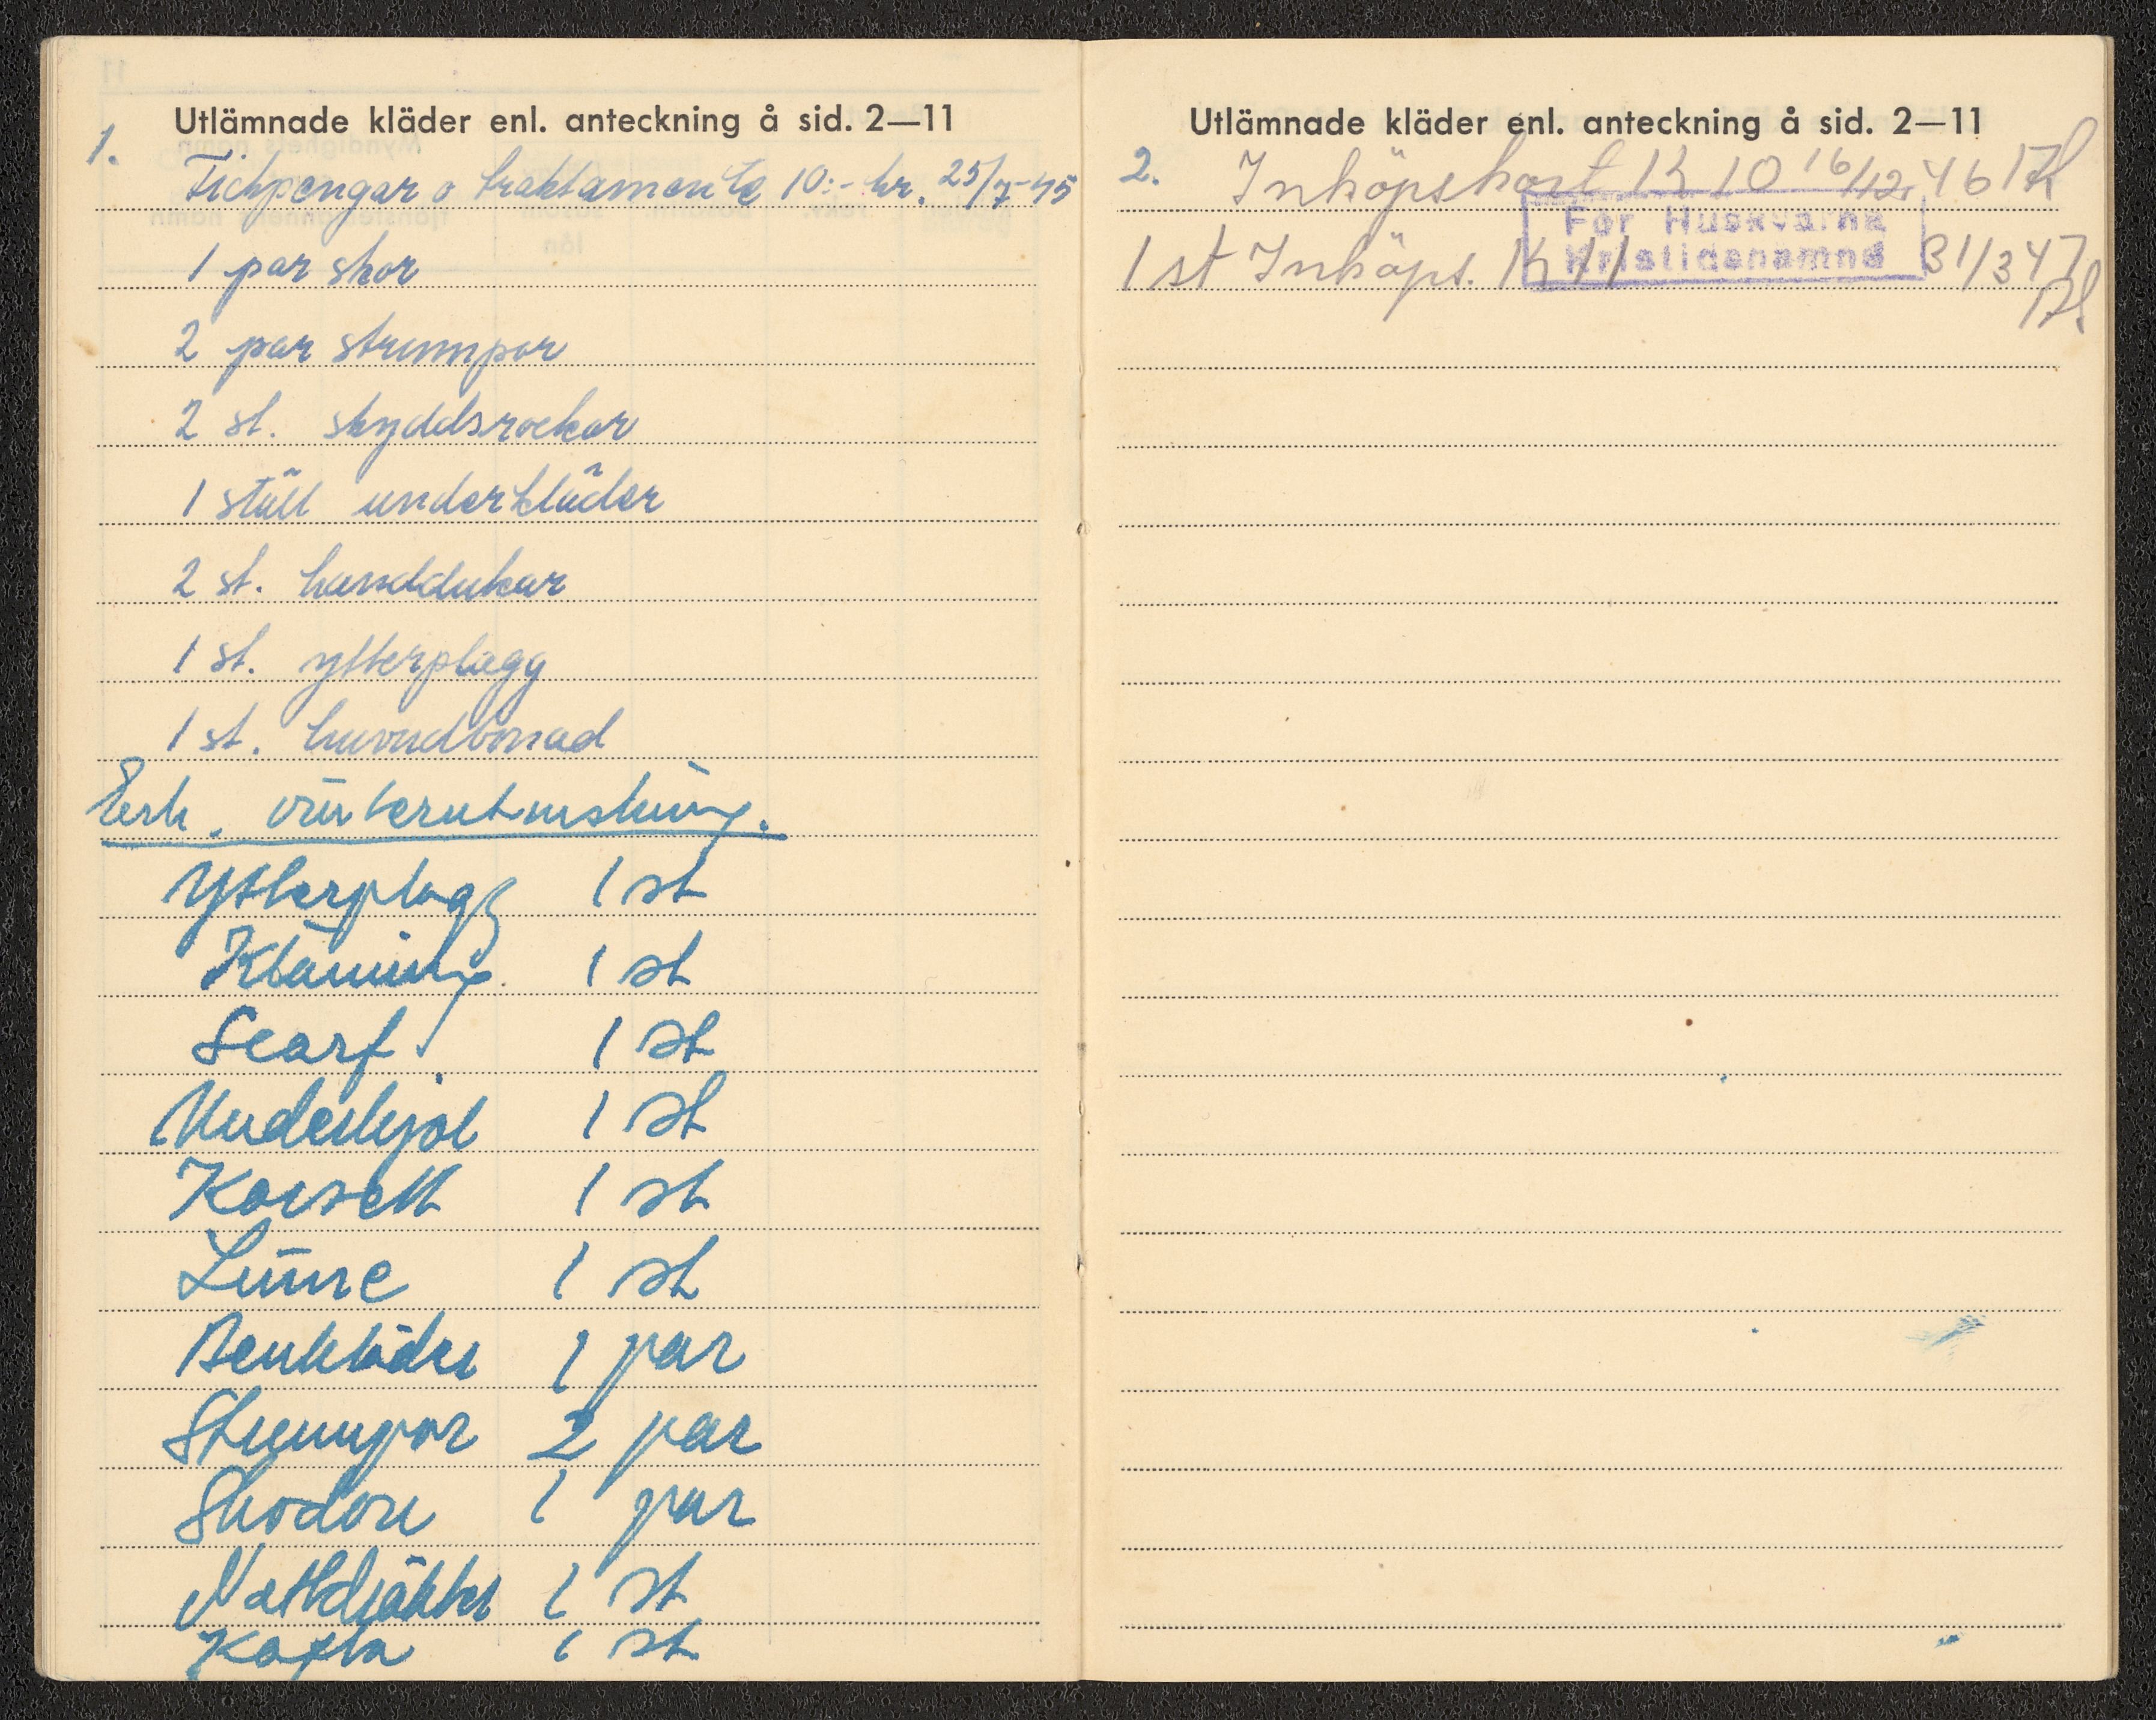 Utlämnade kläder enl. anteckning å sid. 2—11
1.
Fickpengar o traktamente 10:- kr. 25/7-45
1 par skor
2 par strumpor
2 st. skyddsrockar
1 ställ underkläder
2 st. handdukar
1 st. ytterplagg
1 st. huvudbonad
Erh. vinterutrustning.
Ytterplagg 1 st
Klänning 1 st
Scarf 1 st
Underkjol 1 st
Korsett 1 st
Linne 1 st
Benkläder 1 par
Strumpor 2 par
Skodon 1 par
Nattdräkter 1 st
Kofta 1 st
Utlämnade kläder enl. anteckning å sid. 2—11
2.
Inköpskort K 10 16/12 46
För Huskvarna
Kristidsnämnd
1 st Inköps. K 11 31/3 47